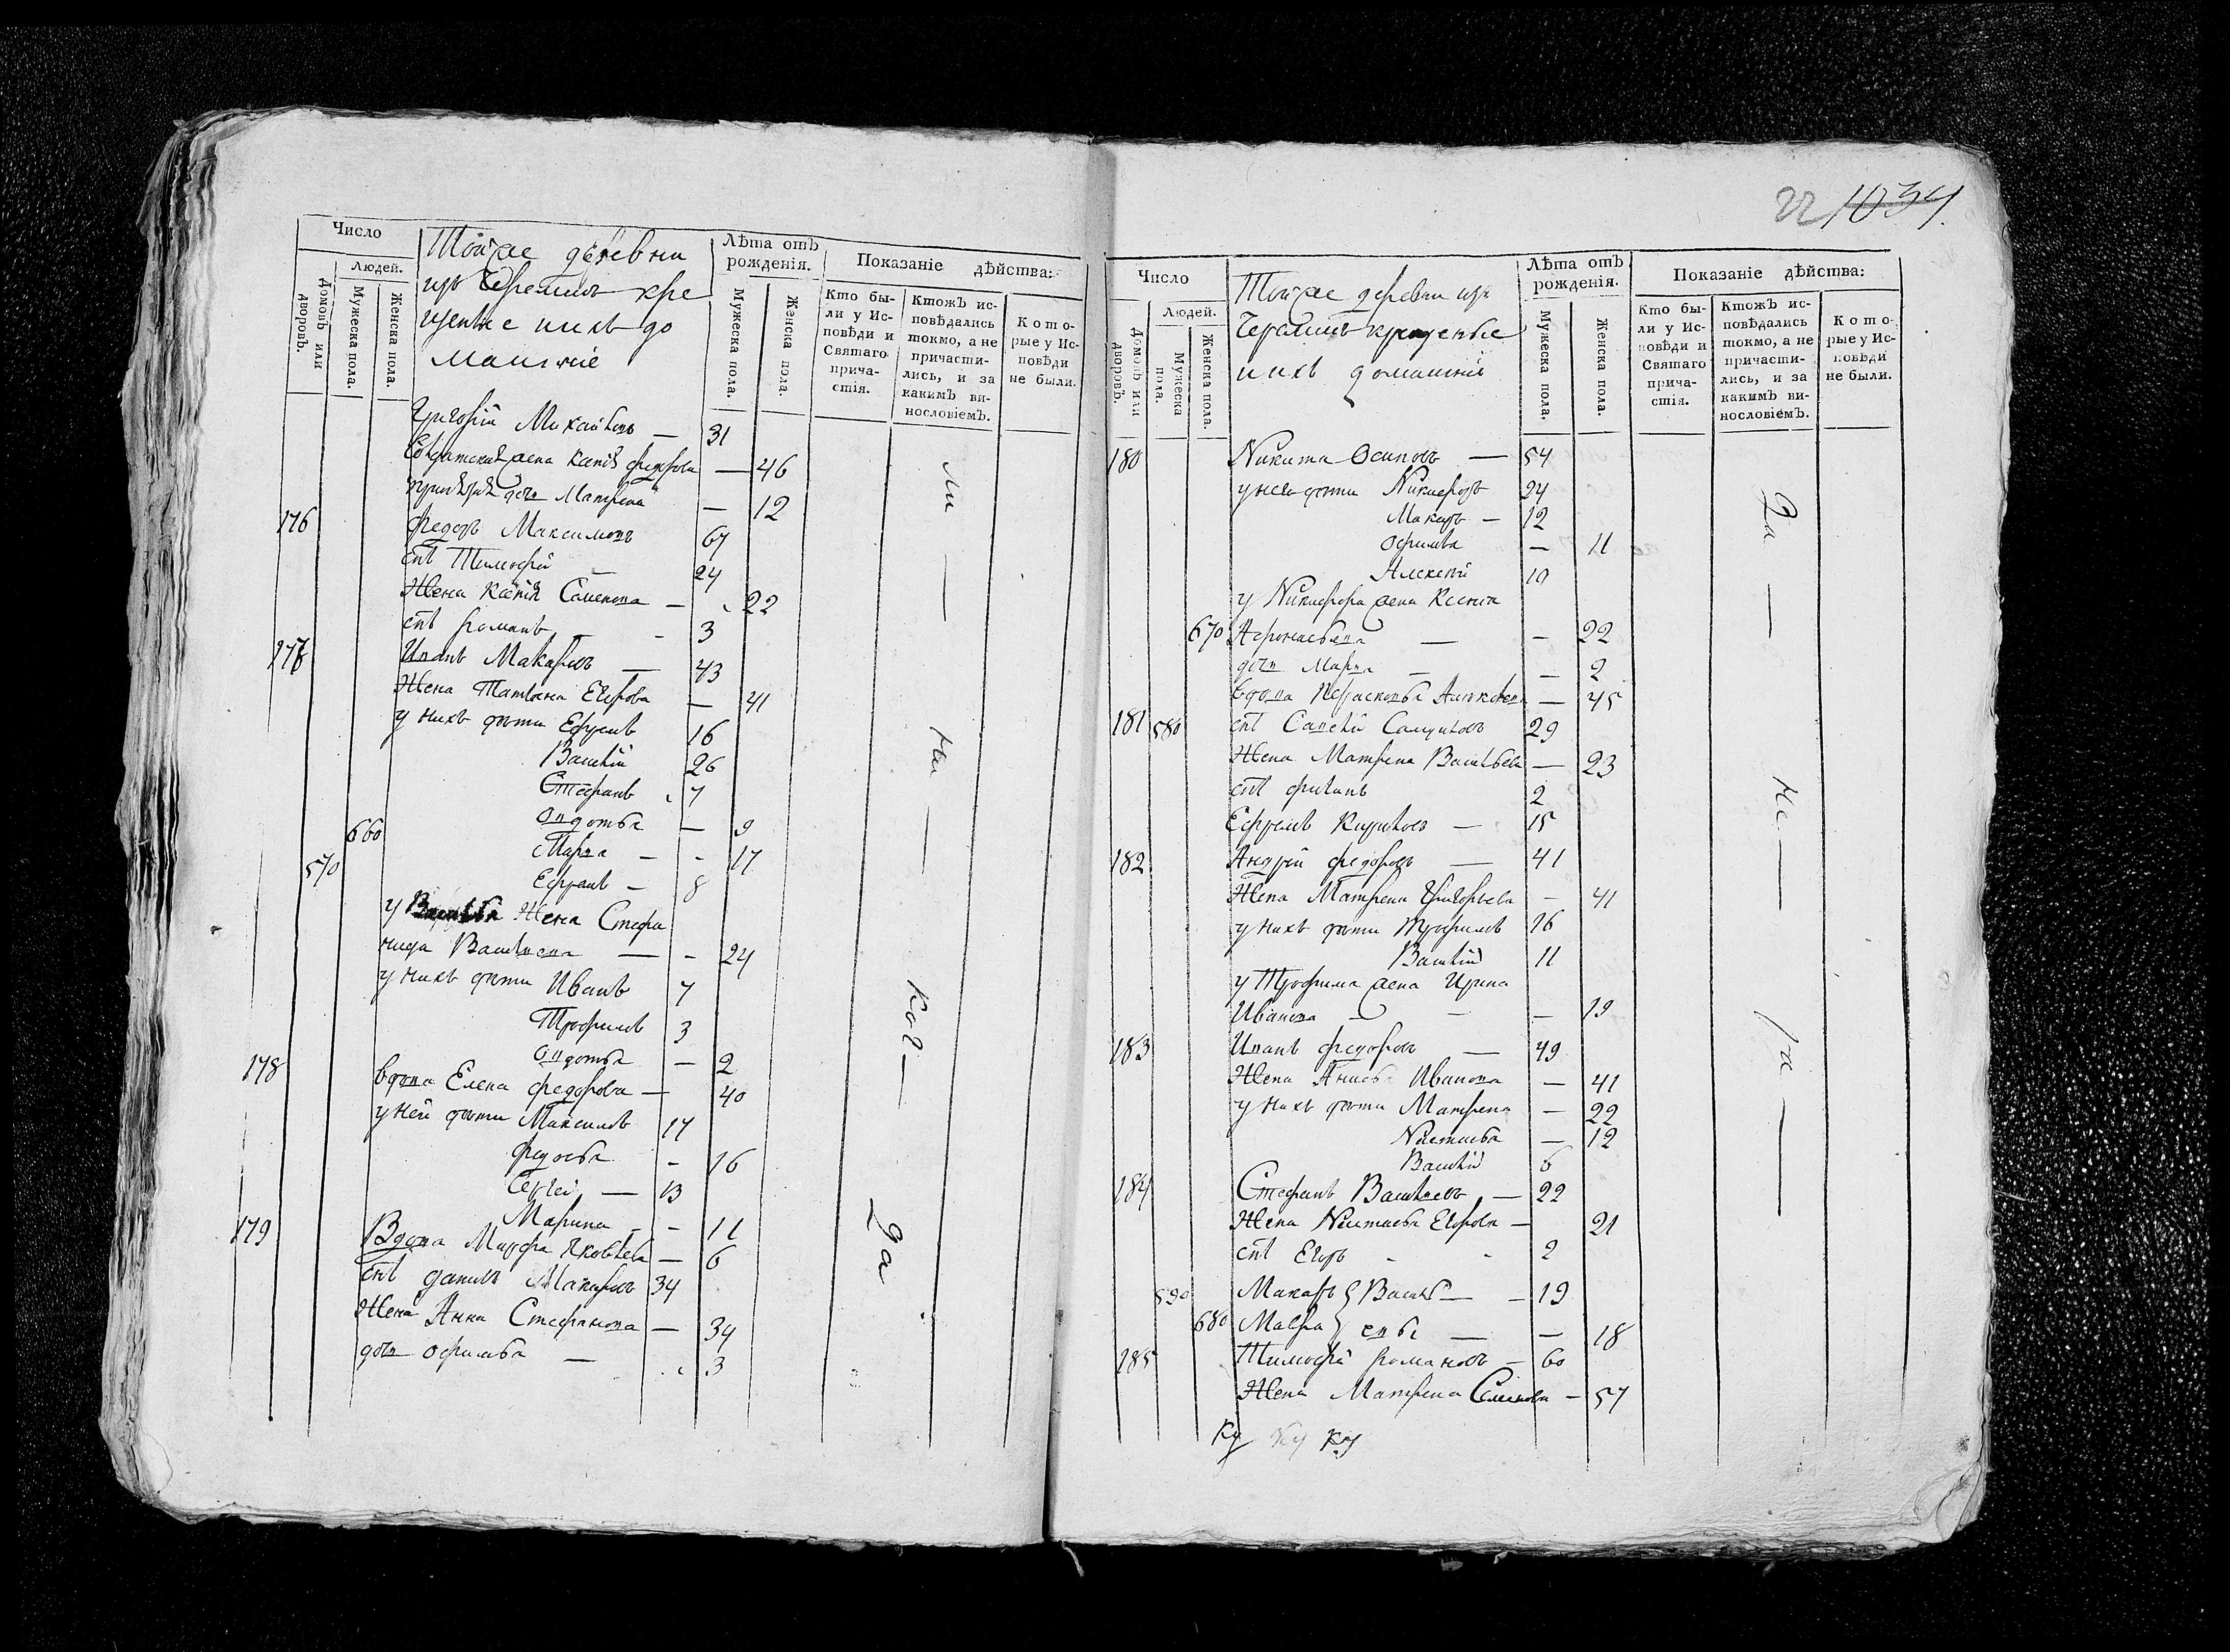 Число
Людей.
Домовъ или дворовъ.
Мужеска пола.
Женска пола.
Тойже деревни
изъ Черемисъ кре
щеные и ихъ до
машніе
Лѣта отъ рожденія.
Мужеска пола.
Женска пола.
Показаніе дѣйства:
Кто бы-
ли у Ис-
повѣди и
Святаго
прича-
стія.
Ктожъ ис-
повѣдались
токмо, а не
причасти-
лись, и за
какимъ ви-
нословіемъ.
Кото-
рые у Ис-
повѣди
не были.
Григорій Михайловъ — 31
жена Федорова — 46
дочь Матрена — 12
176 Федоръ Максимовъ 67
снъ Тимофей — 24
Жена Ксенія Семенова — 22
снъ Романъ — 3
177 Иванъ Макаровъ — 43
Жена Татьяна Егорова — 41
у нихъ дѣти Ефремъ 16
Василій 26
Стефанъ 7
660 Авдотья — 9
Марѳа — 17
570 Ефремъ — 8
у Василья Жена Стефа
нида Васильева — 24
у нихъ дѣти Иванъ 7
Трофимъ 3
Авдотья — 2
178 вдова Елена Федорова — 40
у ней дѣти Максимъ 17
Федосья — 16
Сергей — 13
Марина — 11
179 Вдова Марфа Яковлева — 6
снъ Данилъ Макаровъ 34
Жена Анна Стефанова — 34
дочь Офимья — 3
ли — ни — ког — да
22 1034.
Число
Людей.
Домовъ или дворовъ.
Мужеска пола.
Женска пола.
Тойже деревни изъ
Черемисъ крещеные
и ихъ домашніе
Лѣта отъ рожденія.
Мужеска пола.
Женска пола.
Показаніе дѣйства:
Кто бы-
ли у Ис-
повѣди и
Святаго
прича-
стія.
Ктожъ ис-
повѣдались
токмо, а не
причасти-
лись, и за
какимъ ви-
нословіемъ.
Кото-
рые у Ис-
повѣди
не были.
180 Никита Осиповъ — 54
у него дѣти Никифоръ 24
Макаръ — 12
Офимья — 11
Алексей 10
у Никифора жена Ксенія
670 Афонасьева — 22
дочь Марѳа — 2
вдова Парасковья — 45
181 580 снъ Савелій 29
Жена Матрена Васильева — 23
снъ 2
Ефремъ — 15
182 Андрей Федоровъ — 41
Жена Матрена Григорьева — 41
у нихъ дѣти Трофимъ 16
Василій 11
у Трофима жена Ирина
Иванова — 19
183 Иванъ Федоровъ — 49
Жена Анисья Иванова — 41
у нихъ дѣти Матрена — 22
Настасья — 12
Василій 6
184 Стефанъ Васильевъ — 22
Жена Настасья Егорова — 21
снъ Егоръ — 2
590 Макаръ } Василь — 19
680 Мавра } евы — 18
185 Тимофей Романовъ — 60
Жена Матрена Семенова — 57
Ку Ку Ку